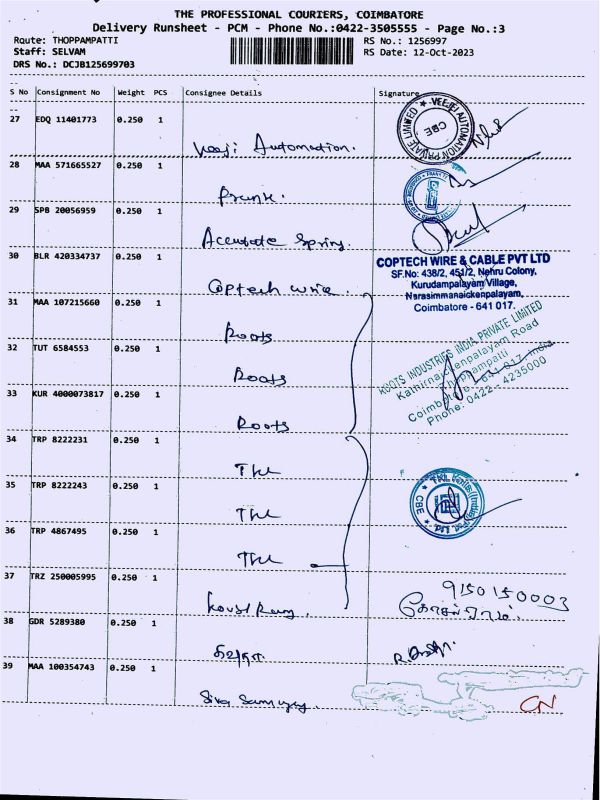 THE PROFESSIONAL COURIERS, COIMBATORE
Delivery Runsheet - PCM - Phone No.:0422-3505555 - Page No.:3
Route: THOPPAMPATTI RS No.: 1256997
Staff: SELVAM RS Date: 12-Oct-2023
DRS No.: DCJB125699703
S No Consignment No Weight PCS Consignee Details Signature
27 EDQ 11401773 0.250 1
Automation.
VEEJEI AUTOMATION PRIVATE LIMITED
CBE
28 MAA 571665527 0.250 1
29 SPB 20056959 0.250 1
Accurate Spring
30 BLR 420334737 0.250 1
Coptech wire.
COPTECH WIRE & CABLE PVT LTD
SF.No: 438/2, 451/2, Nehru Colony,
Kurudampalayam Village,
Narasimmanaickenpalayam,
Coimbatore - 641 017.
31 MAA 107215660 0.250 1
Roots
32 TUT 6584553 0.250 1
Roots
33 KUR 4000073817 0.250 1
Roots
ROOTS INDUSTRIES INDIA PRIVATE LIMITED
Kathirnaickenpalayam Road
Thoppampatti
Coimbatore - 641 017 India
Phone: 0422 - 4235000
34 TRP 8222231 0.250 1
The
35 TRP 8222243 0.250 1
The
CBE
36 TRP 4867495 0.250 1
The
37 TRZ 250005995 0.250 1
9150150003
38 GDR 5289380 0.250 1
கவிதா
39 MAA 100354743 0.250 1
Siva
CN